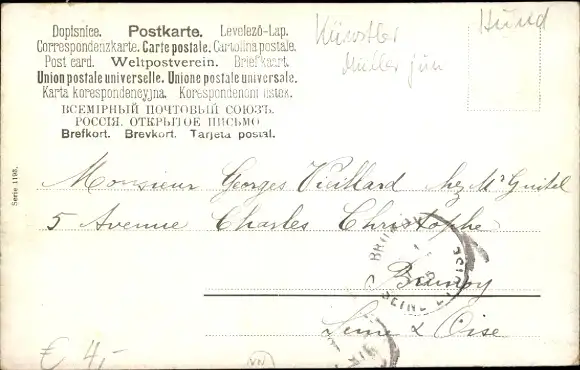 Dopisnice. Postkarte. Levelező-Lap.
Correspondenzkarte. Carte postale. Cartolina postale.
Post card. Weltpostverein. Briefkaart.
Union postale universelle. Unione postale universale.
Karta korespondencyjna. Korespondenčni listek.
ВСЕМІРНЫЙ ПОЧТОВЫЙ СОЮЗЪ.
РОССІЯ. ОТКРЫТОЕ ПИСЬМО
Brefkort. Brevkort. Tarjeta postal.
Künstler
Müller jün
Hund
Serie 1196.
Monsieur Georges Vuillard chez Mr
5 Avenue Charles Christophe
Brunoy
Seine & Oise
BRUNOY
SEINE
€ 4,-